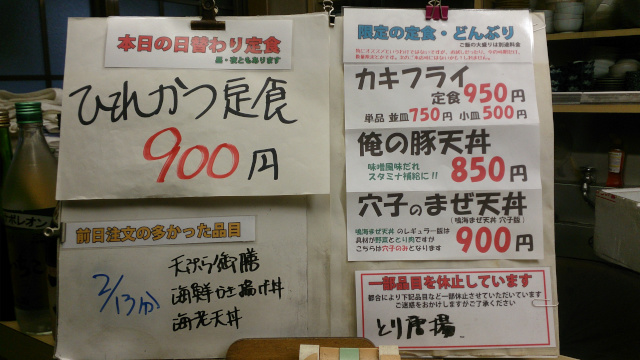 本日の日替わり定食
昼・夜ともあります
ひれかつ定食
900円
前日注文の多かった品目
2/13分
天ぷら御膳
海鮮かき揚げ丼
海老天丼
限定の定食・どんぶり
ご飯の大盛りは別途料金
カキフライ
定食 950円
単品 並皿 750円 小皿 500円
俺の豚天丼
味噌風味だれ
スタミナ補給に!!
850円
穴子のまぜ天丼
(鳴海まぜ天丼 穴子版)
鳴海まぜ天丼 のレギュラー版は
具材が野菜ととり肉ですが
こちらは穴子のみとなります
900円
一部品目を休止しています
都合により下記品目など一部休止させていただいています
ご迷惑をおかけしますがご了承ください
とり唐揚
ナポレオン